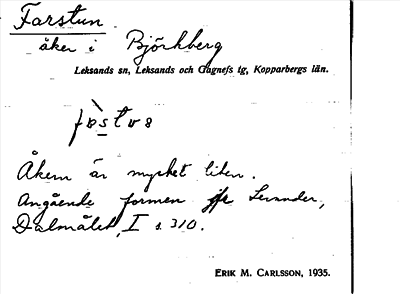 Farstun
åker i Björkberg
Leksands sn, Leksands och Gagnefs tg, Kopparbergs län.
Åkern är mycket liten.
Angående formen jfr Levander,
Dalmålet, I s. 310.
ERIK M. CARLSSON, 1935.